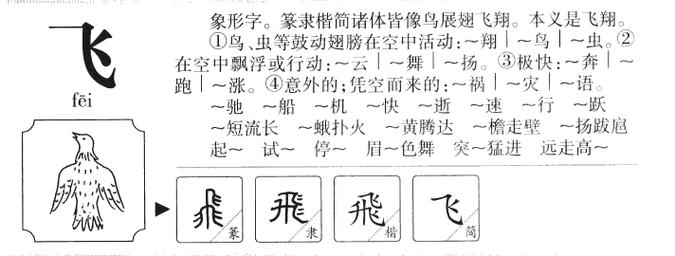 飞
fēi
象形字。篆隶楷简诸体皆像鸟展翅飞翔。本义是飞翔。
①鸟、虫等鼓动翅膀在空中活动:～翔｜～鸟｜～虫。②
在空中飘浮或行动:～云｜～舞｜～扬。③极快:～奔｜～
跑｜～涨。④意外的;凭空而来的:～祸｜～灾｜～语。
～驰 ～船 ～机 ～快 ～逝 ～速 ～行 ～跃
～短流长 ～蛾扑火 ～黄腾达 ～檐走壁 ～扬跋扈
起～ 试～ 停～ 眉～色舞 突～猛进 远走高～
飛 篆 飛 隶 飛 楷 飞 简